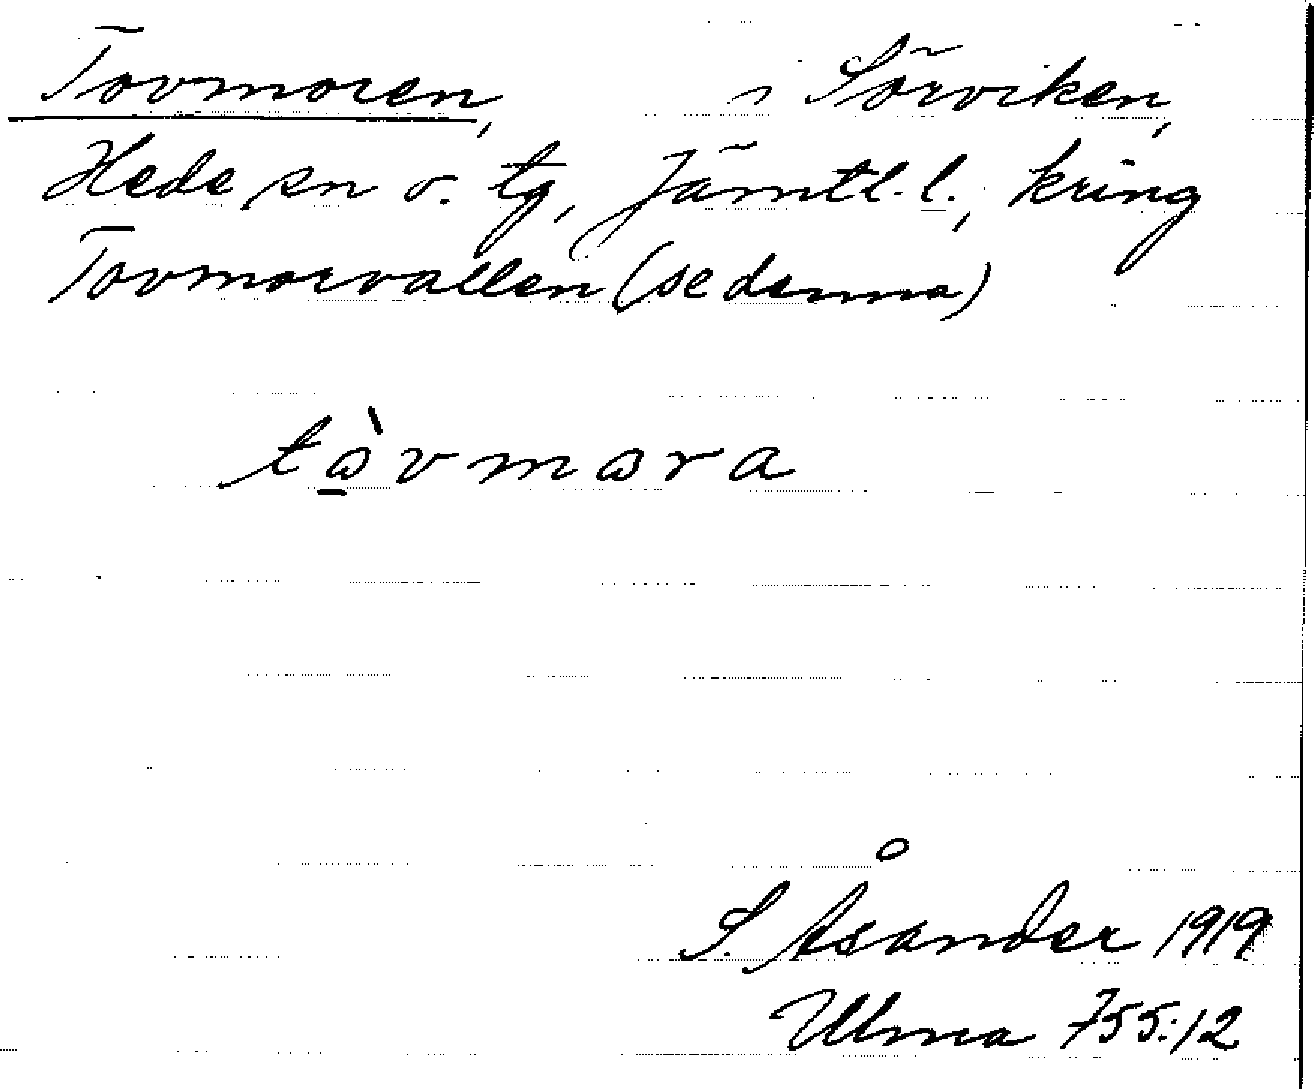 Tovmoren, i Sörviken,
Hede sn o. tg, Jämtl. l., kring
Tovmorvallen (se denna)
tåvmåra
S. Åsander 1919
Ulma 755:12